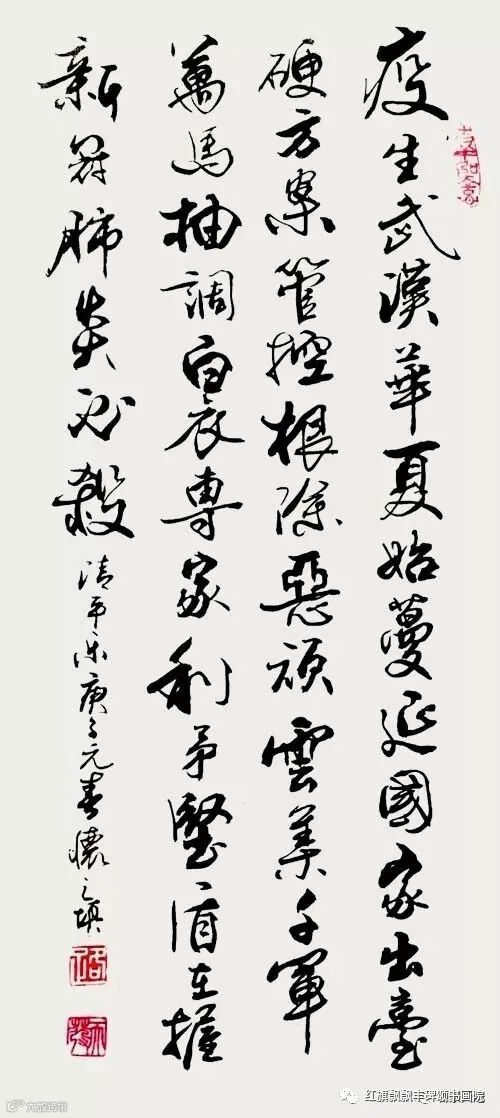 疫生武漢華夏始蔓延國家出臺
硬方案管控根除惡頑雲集千軍
萬馬抽調白衣專家利矛堅盾在握
新冠肺炎必殺
清平乐庚子元春懷之填
红旗飘飘丰碑颂书画院
大成跨境